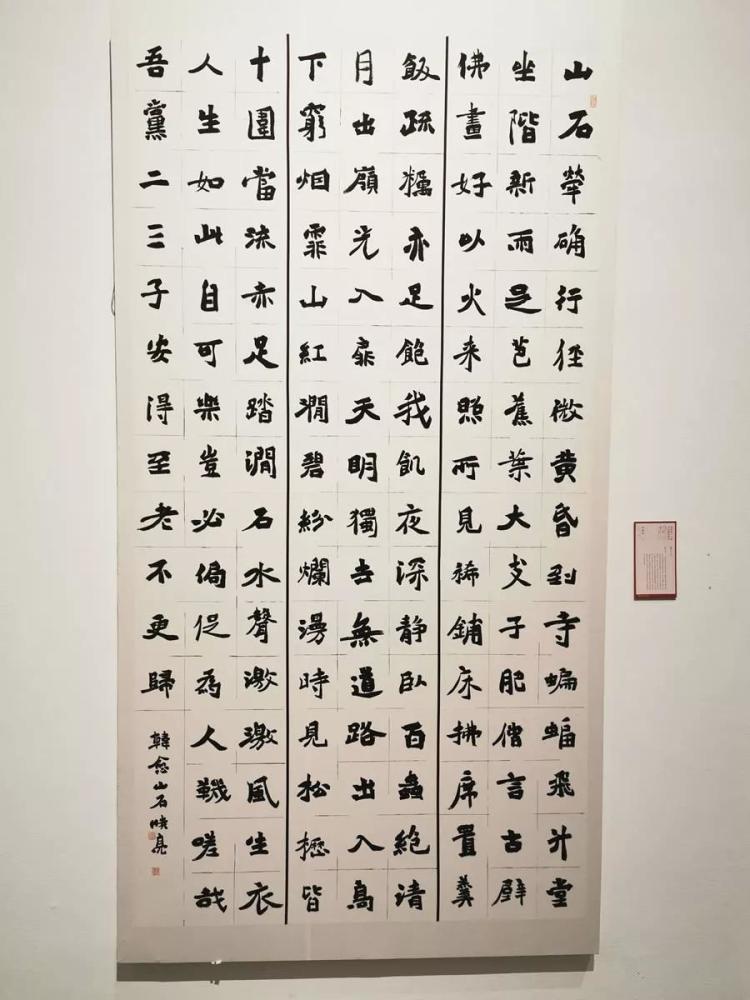 山石犖确行徑微黄昏到寺蝙蝠飛升堂
坐階新雨足芭蕉葉大支子肥僧言古壁
佛畫好以火来照所見稀鋪床拂席置羹
飯疏糲亦足飽我飢夜深静臥百蟲絕清
月出嶺光入扉天明獨去無道路出入高
下窮烟霏山紅澗碧紛爛漫時見松櫪皆
十圍當流赤足踏澗石水聲激激風生衣
人生如此自可樂豈必侷促為人鞿嗟哉
吾黨二三子安得至老不更歸
韓愈山石 亮